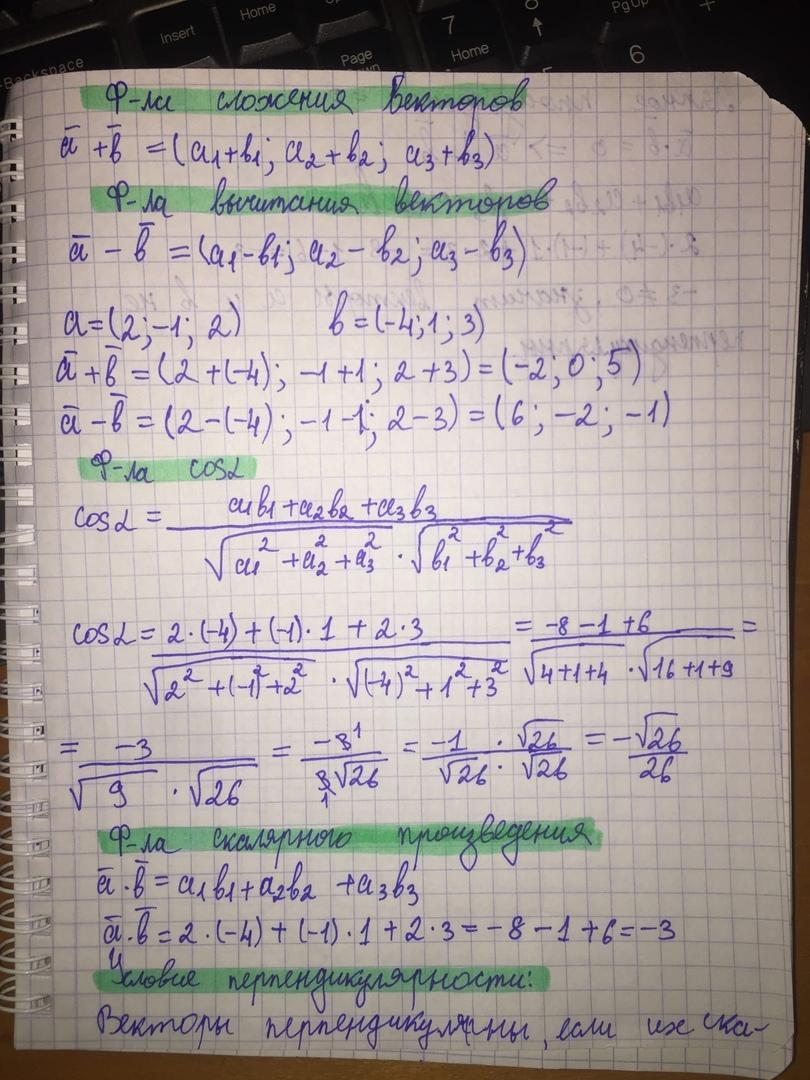 Backspace
Insert
Home
PgUp
+
7
Home
8
↑
Page
5
6
Ф-ла сложения векторов
a̅ + b̅ = (a₁+b₁; a₂+b₂; a₃+b₃)
Ф-ла вычитания векторов
a̅ − b̅ = (a₁−b₁; a₂−b₂; a₃−b₃)
a=(2;−1; 2) b=(−4;1;3)
a̅+b̅ = (2+(−4); −1+1; 2+3)=(−2;0;5)
a̅−b̅ = (2−(−4); −1−1; 2−3)=(6; −2; −1)
Ф-ла cosα
cosα = (a₁b₁+a₂b₂+a₃b₃)/(√(a₁²+a₂²+a₃²) · √(b₁²+b₂²+b₃²))
cosα = (2·(−4)+(−1)·1+2·3)/(√(2²+(−1)²+2²) · √((−4)²+1²+3²)) = (−8−1+6)/(√(4+1+4) · √(16+1+9)) =
= −3/(√9 · √26) = −3¹/(3₁√26) = (−1 · √26)/(√26 · √26) = −√26/26
Ф-ла скалярного произведения
a̅·b̅ = a₁b₁+a₂b₂+a₃b₃
a̅·b̅ = 2·(−4)+(−1)·1+2·3=−8−1+6=−3
Условие перпендикулярности:
Векторы перпендикулярны, если их ска-